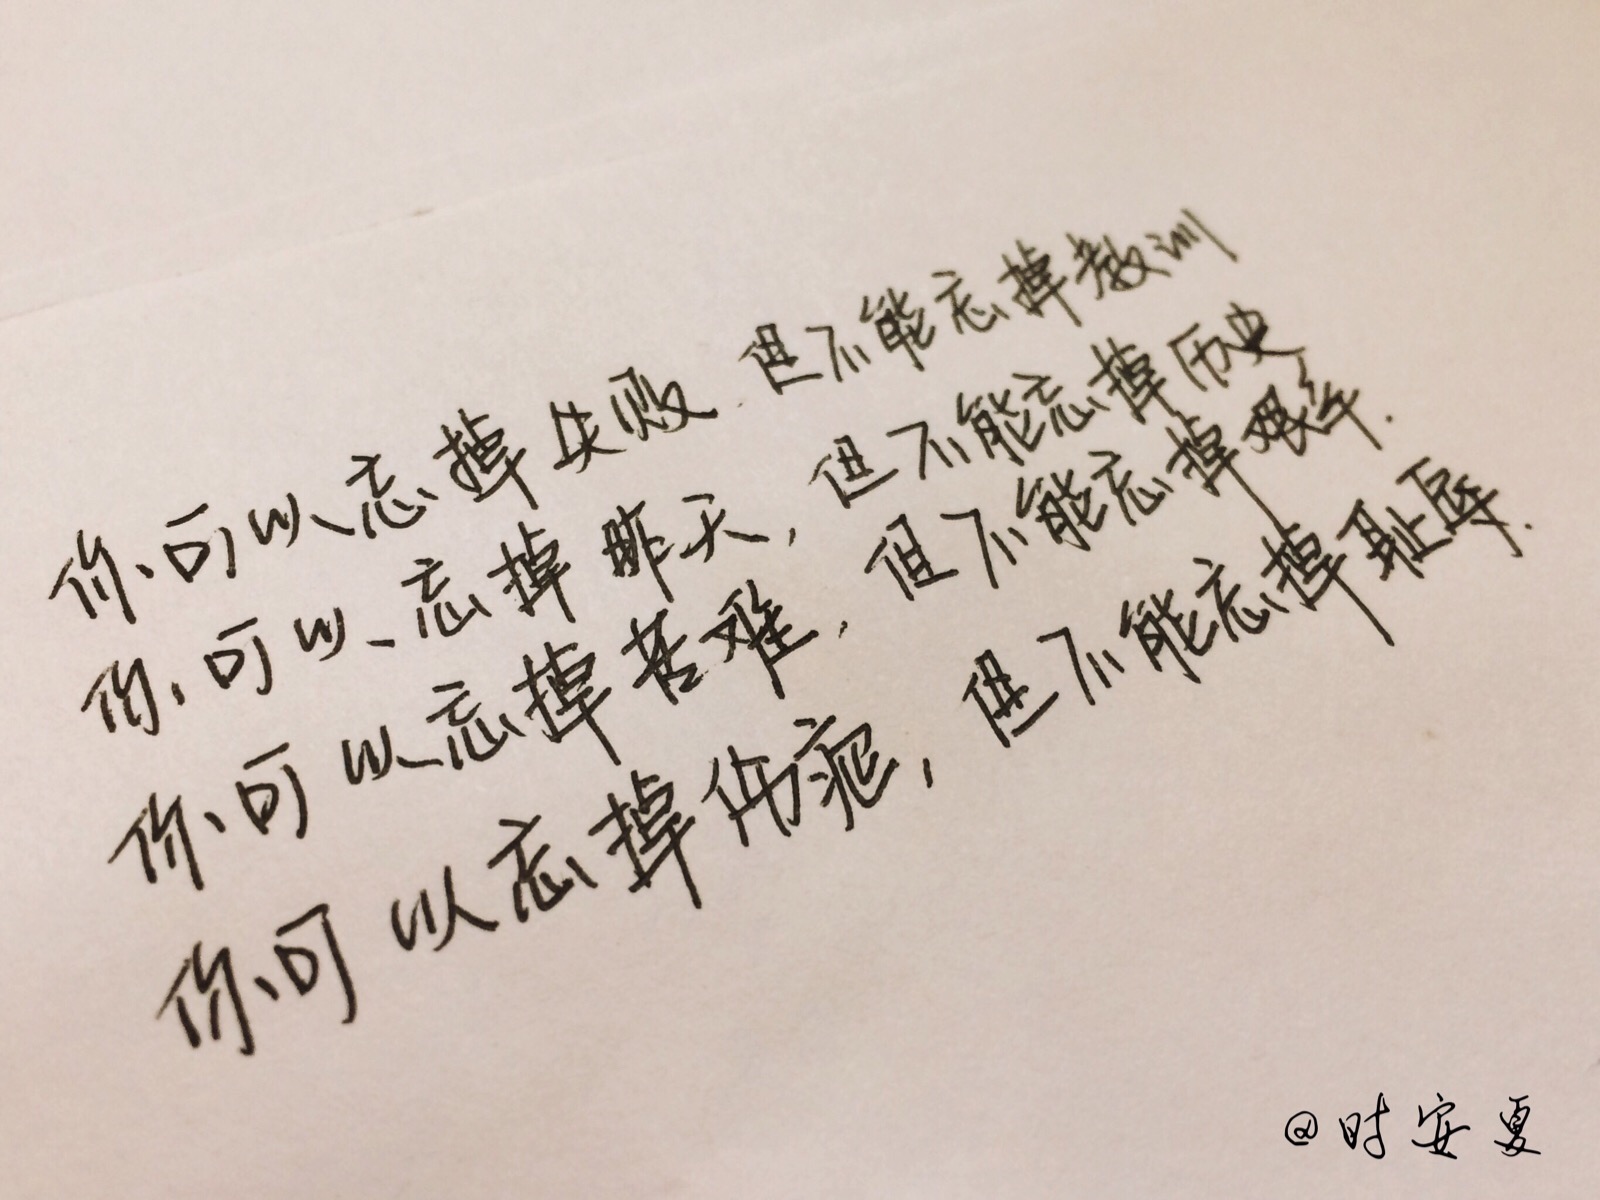 你可以忘掉失败.但不能忘掉教训
你可以忘掉昨天,但不能忘掉历史,
你可以忘掉苦难,但不能忘掉艰辛.
你可以忘掉伤疤,但不能忘掉耻辱.
@时安夏